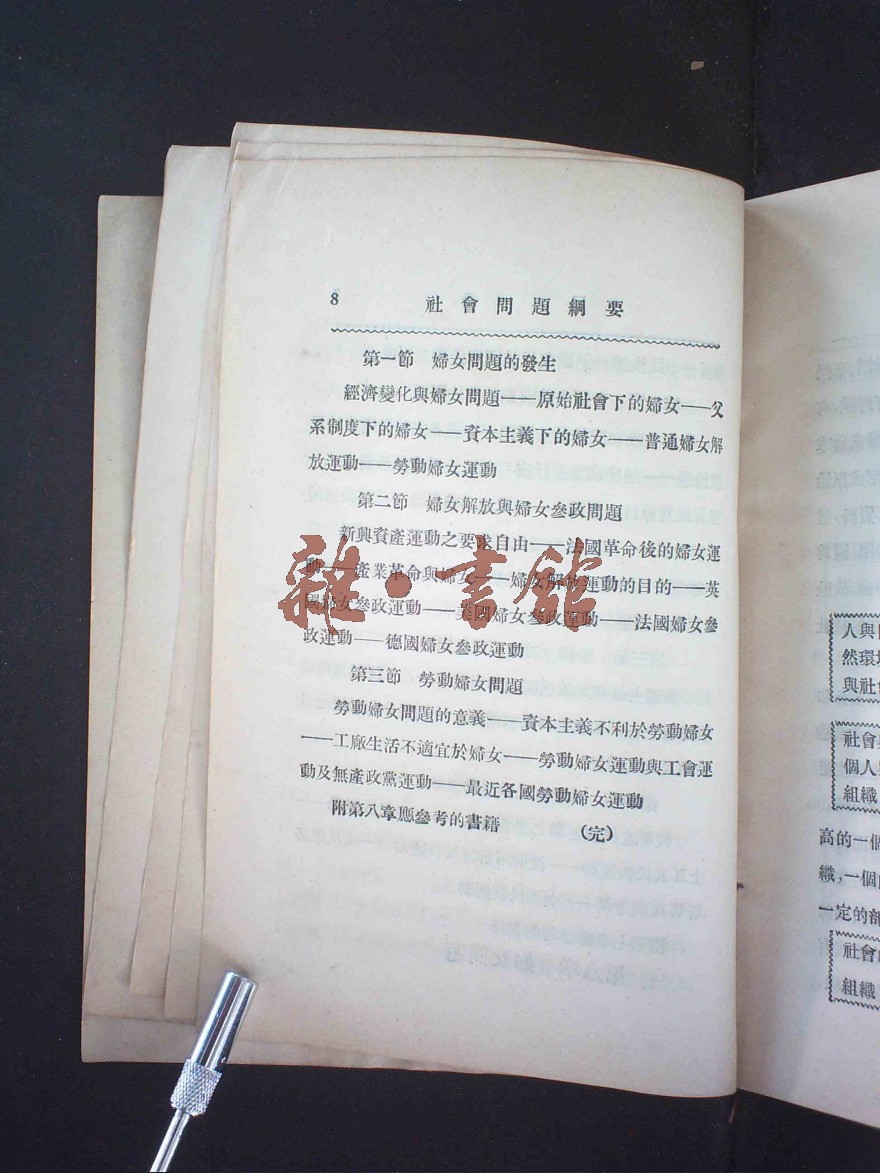 8 社會問題綱要
第一節 婦女問題的發生
經濟變化與婦女問題——原始社會下的婦女——父
系制度下的婦女——資本主義下的婦女——普通婦女解
放運動——勞動婦女運動
第二節 婦女解放與婦女參政問題
新興資產運動之要求自由——法國革命後的婦女運
動——產業革命與婦女——婦女解放運動的目的——英
國婦女參政運動——美國婦女參政運動——法國婦女參
政運動——德國婦女參政運動
第三節 勞動婦女問題
勞動婦女問題的意義——資本主義不利於勞動婦女
——工廠生活不適宜於婦女——勞動婦女運動與工會運
動及無產政黨運動——最近各國勞動婦女運動
附第八章應參考的書籍 (完)
雜·書館
然環
與社
社會
個人
組織
高的一個
織,一個
一定的部
社會
組織